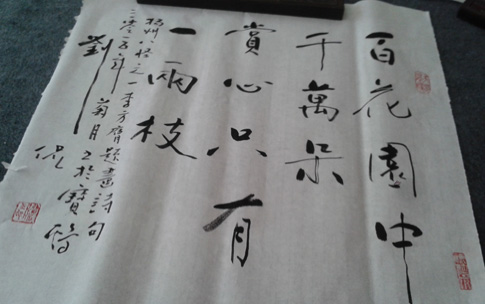 百花園中
千萬朵
賞心只有
一兩枝
揚州八怪之一李方膺題畫詩句
二零一五年
菊月
劉